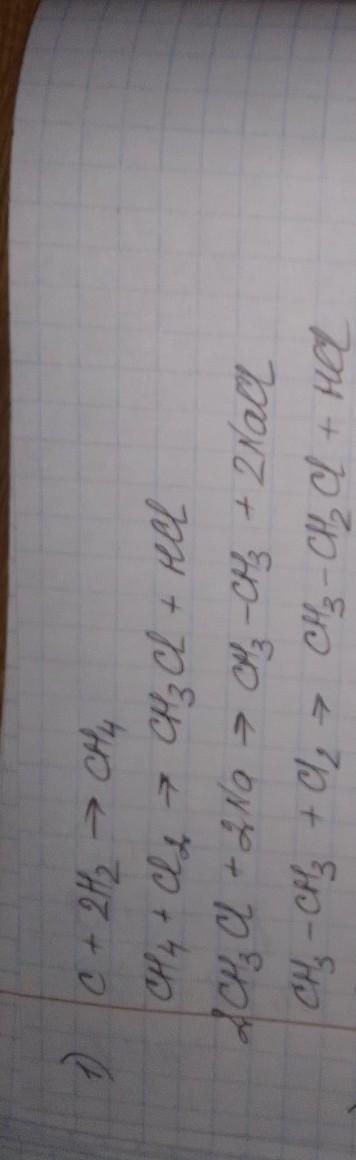 1) C + 2H₂ → CH₄
CH₄ + Cl₂ → CH₃Cl + HCl
2CH₃Cl + 2Na → CH₃-CH₃ + 2NaCl
CH₃-CH₃ + Cl₂ → CH₃-CH₂Cl + HCl